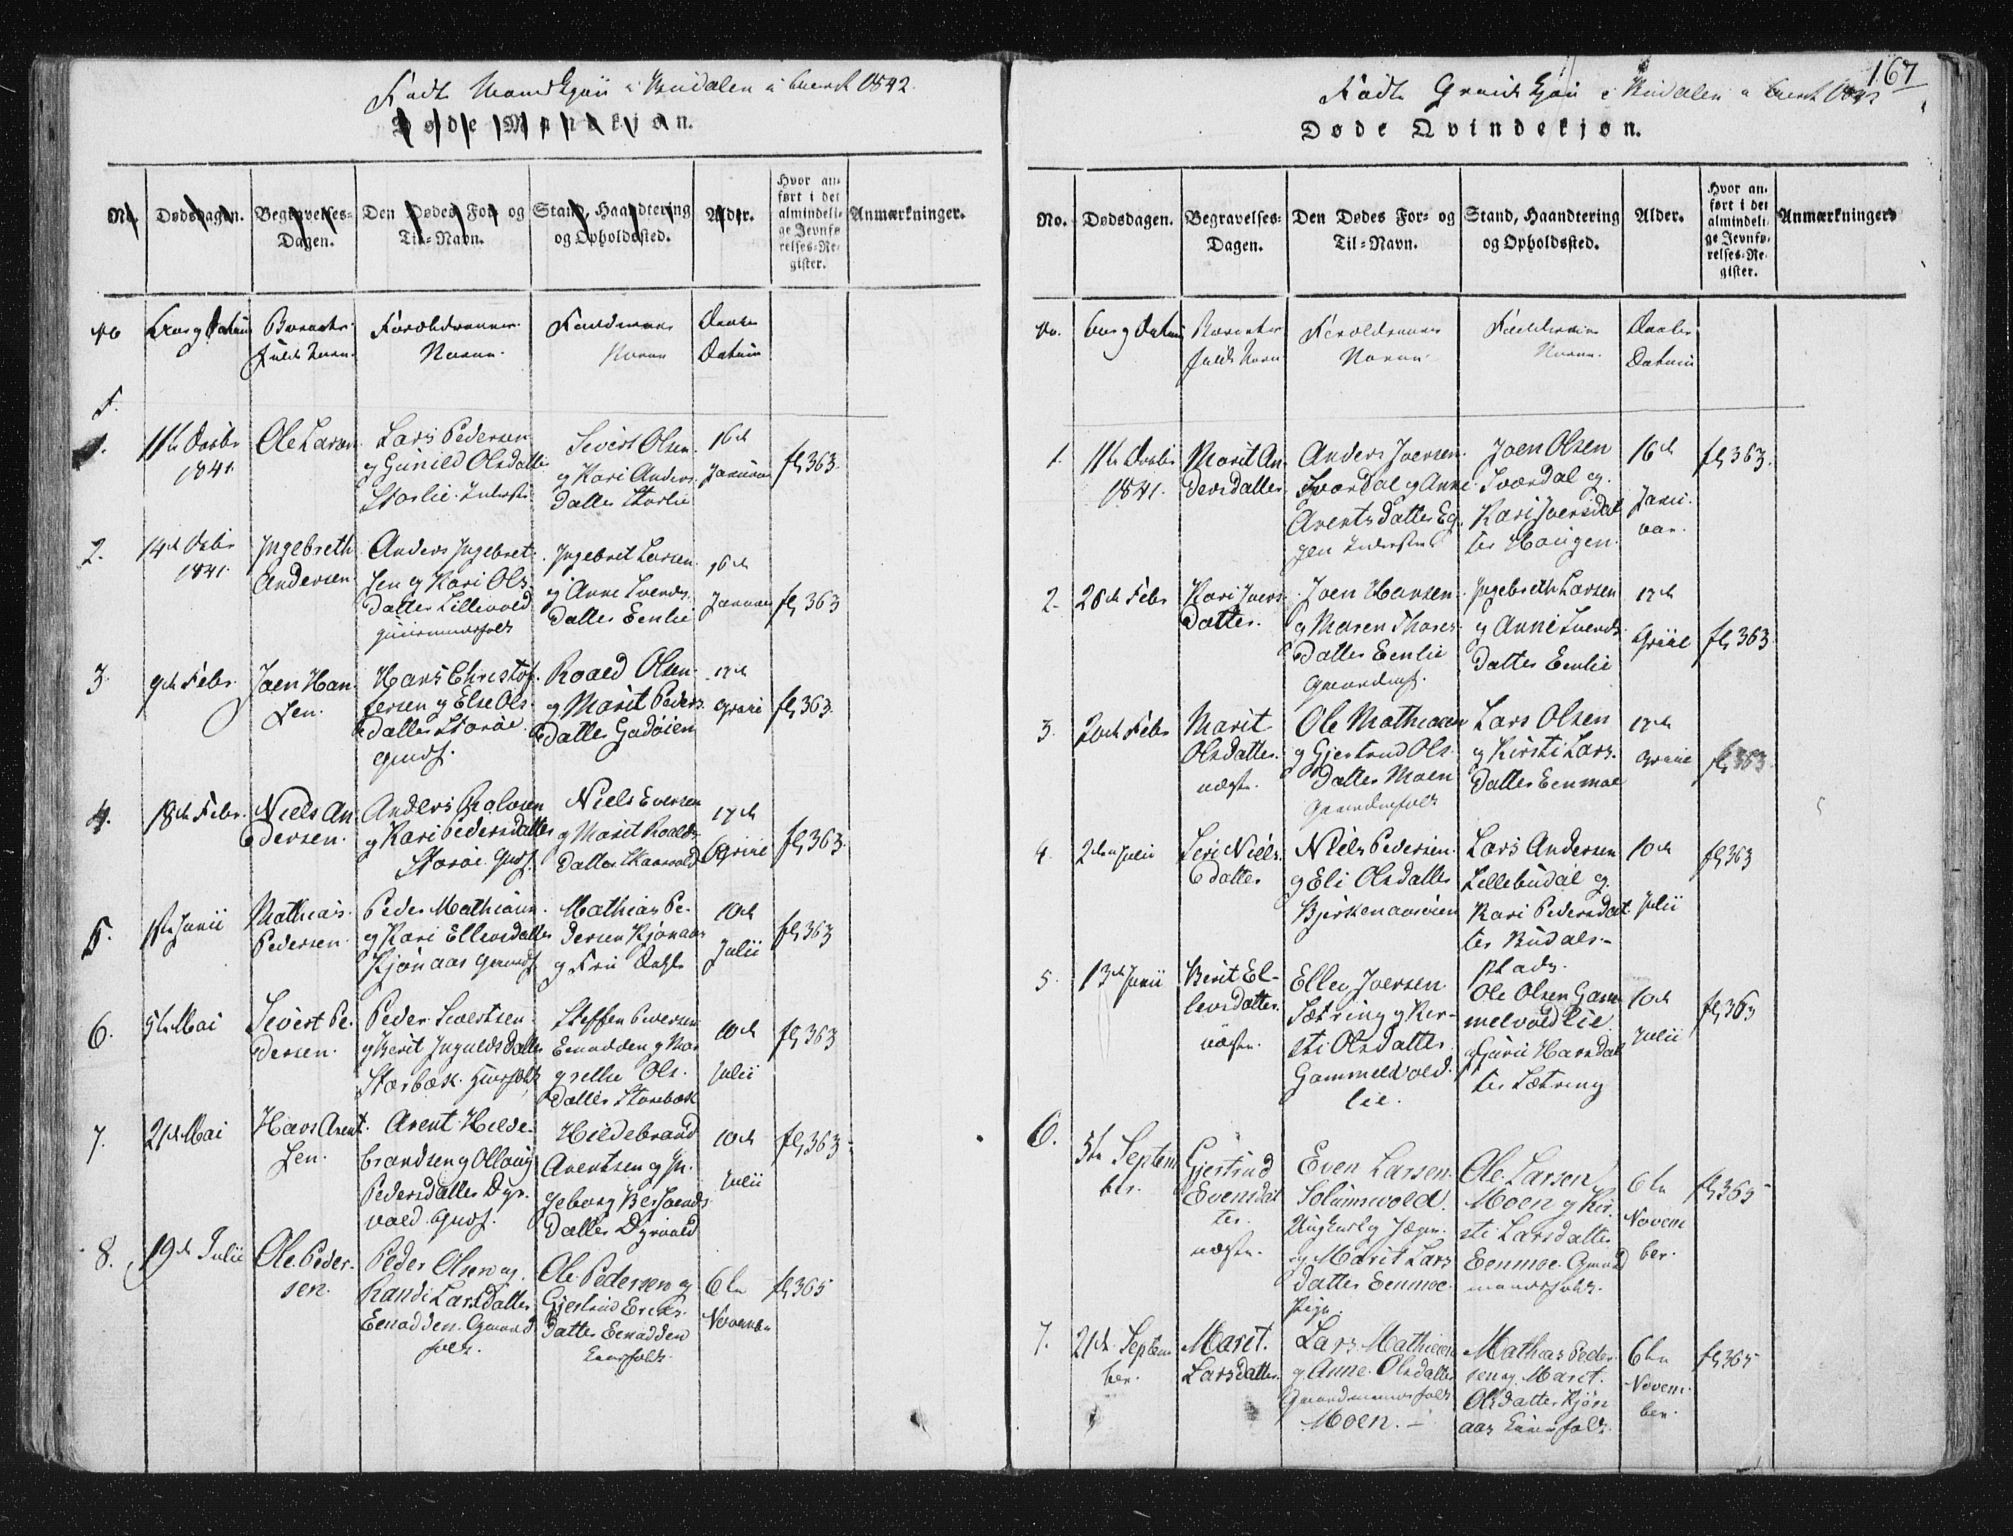 167
Født Mandkjøn i Budalen i Aaret 1842.
Døde Mandkjøn.
No.
Dødsdagen.
Begravelses-
Dagen.
Den Dødes For- og
Til-Navn.
Stand, Haandtering
og Opholdssted.
Alder.
Hvor an-
ført i det
almindeli-
ge Jevnfø-
relses-Re-
gister.
Anmærkninger.
No
Aar og Datum
Barnets
fulde Navn
Forældrenes
Navne.
Faddernes
Navne
Daabs
Datum
1.
11te Decbr
1841.
Ole Larsen
Lars Pedersen
og Gunild Olsdatter
Storlie
Sivert Olsen
og Kari Anders
datter Storlie
16de
Januar
fl 363.
2.
14de Decbr
1841.
Ingebreth
Andersen
Anders Ingebret-
sen og Kari Ols
datter Lillevold
Ingebret Larsen
og Anne Svends
datter Eenlie
16de
Januar
fl 363
3.
9de Febr.
Joen Han-
sen.
Hans Christof-
fersen og Else Ols
datter Storøe
Gmdf.
Roald Olsen
og Marit Peders
datter Gadøien
17de
April
fl 363.
4.
18de Febr.
Niels An-
dersen.
Anders Roaldsen
og Kari Pedersdatter
Storøe Gmdf.
Niels Evensen
og Marit Roalds-
datter
17de
April
fl 363.
5.
1ste Junii
Mathias
Pedersen
Peder Mathiasen
og Kari Ellevsdatter
Kjønaas Gaardf.
Mathias Pe-
dersen Kjønaas
og
10de
Julii
fl 363
6.
5te Mai
Sivert Pe-
dersen.
Peder Sivertsen
og Berit Ingulds datter
Storbæk
Steffen Iversen
Eenodden og Mar
grethe Ols-
datter Storbæk
10de
Julii
fl 363
7.
21de Mai
Hans Arent
sen.
Arent Hilde-
brandsen og Ollaug
Pedersdatter Dyr-
vold Gmdf.
Hildebrand
Arentsen og In-
geborg Bersvends
datter Dyrvold
10de
Julii
fl 363
8.
19de Julii
Ole Peder-
sen.
Peder Olsen og
Randi Larsdatter
Eenodden. Gaard
folk.
Ole Pedersen og
Gjertrud Ericks-
datter Eenodden
6te
November
fl 365
Født Qvindekjøn i Budalen i Aaret 1842
Døde Qvindekjøn.
No.
Dødsdagen.
Begravelses-
Dagen.
Den Dødes For- og
Til-Navn.
Stand, Haandtering
og Opholdssted.
Alder.
Hvor an-
ført i det
almindeli-
ge Jevnfø-
relses-Re-
gister.
Anmærkninger.
No.
Aar og Datum
Barnets
fulde Navn
Forældrenes
Navne.
Faddernes
Navne.
Daabs
Datum
1.
11te Decbr
1841.
Marit An-
dersdatter
Anders Joensen
Sværdal og Anne
Arentsdatter Eg-
gen
Joen Olsen
Sværdal og
Kari Joensdat
ter Haugen
16de
Janu-
ar.
fl 363.
2.
28de Febr
Kari Joens
datter.
Joen Hansen
og Maren Thores
datter Eenlie
Ingebreth Larsen
og Anne Svends
datter Eenlie
17de
April
fl 363
3.
20de Febr
Marit
Olsdatter.
uægte.
Ole Mathiasen
og Gjertrud Ols-
datter Moen
Lars Olsen
og Kirsti Lars-
datter Eenmoe
17de
April
fl 363
4.
2den Julii
Siri Niels
datter
Niels Pedersen
og Eli Olsdatter
Bjerkenaasøien
Lars Andersen
Lillebudal og
Kari Pedersdat
ter Budals-
plads.
10de
Julii
fl 363
5.
13de Junii
Berit El-
levsdatter.
uægte.
Ellev Joersen
Sætring og Kir-
sti Olsdatter
Gammelvold-
lie.
Ole Olsen Gam
melvoldlie
og Guru Hansdat
ter Sætring
10de
Julii
fl 363
6.
5te Septem
ber.
Gjertrud
Evensdat
ter.
uægte.
Even Larsen
Solumsvold.
Ungkarl og Jæger.
og Marit Lars
datter Eenmoe
Pige.
Ole Larsen
Moen og Kir-
sti Larsdatter
Eenmoe Gaard
mandsfolk.
6te
Novem
ber.
fl 365
7.
21de Septem
ber.
Marit
Larsdatter.
Lars Mathiasen
og Anne Olsdatter
Gaardmandsfolk
Moen.
Mathias Peder
sen og Marit
Olsdatter Kjøn
aas
6te
Novem-
ber.
fl 365